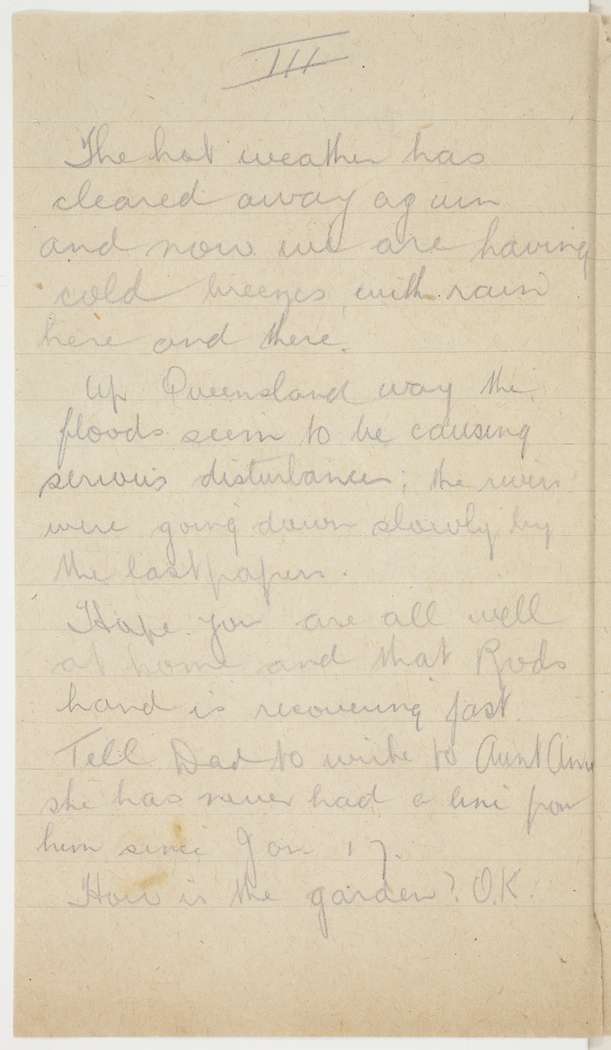 III
The hot weather has
cleared away again
and now we are having
cold breezes with rain
here and there.
Up Queensland way the
floods seem to be causing
serious disturbances; the rivers
were going down slowly by
the last papers.
Hope you are all well
at home and that Rods
hand is recovering fast.
Tell Dad to write to Aunt
she has never had a line from
him since Jan 17.
How is the garden? O.K.